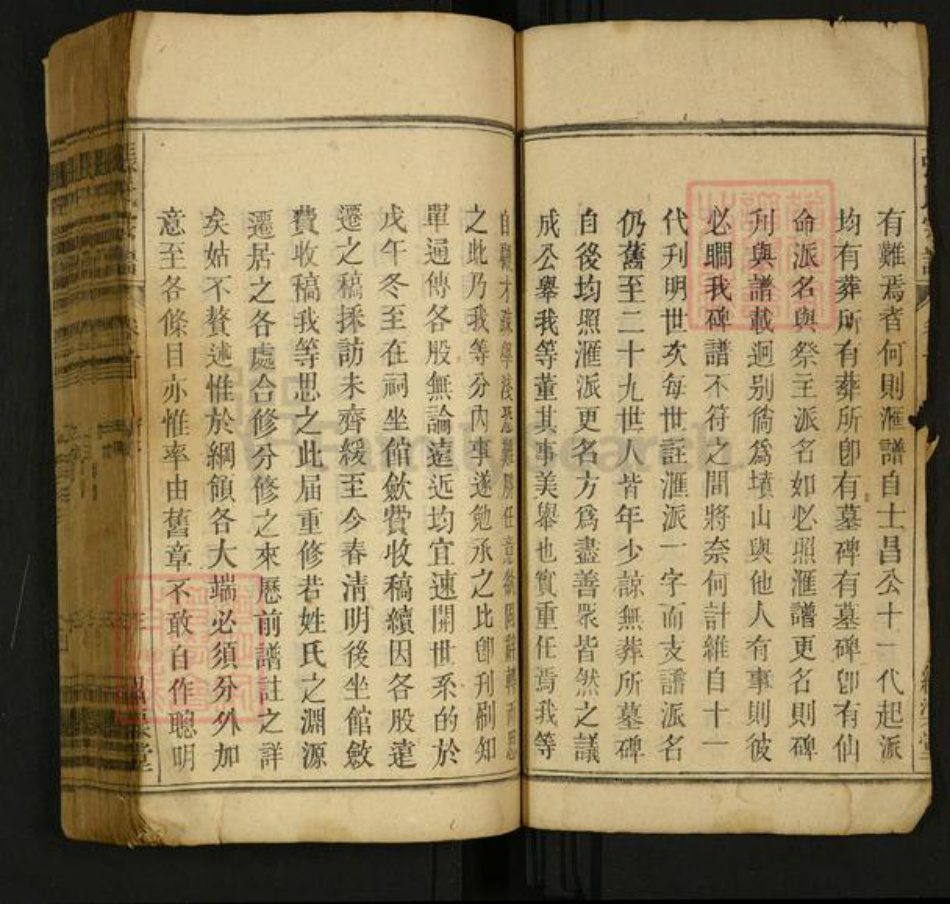 有難焉者何則滙譜自士昌公十一代起派
均有葬所有葬所卽有墓碑有墓碑卽有仙
命派名與祭主派名如必照滙譜更名則碑
刋與譜載迥别倘爲墳山與他人有事則彼
必瞷我碑譜不符之間將奈何計維自十一
代刋明世次每世註滙派一字而支譜派名
仍舊至二十九世人皆年少諒無葬所墓碑
自後均照滙派更名方爲盡善衆皆然之議
成公舉我等董其事美舉也實重任焉我等
自愧才疏學淺恐難勝任意欲固辭轉而思
之此乃我等分內事遂勉承之比卽刋刷知
單遍傳各股無論遠近均宜速開世系的於
戊午冬至在祠坐館歛費收稿續因各股遠
遷之稿採訪未齊緩至今春淸明後坐館斂
費收稿我等思之此届重修若姓氏之淵源
遷居之各處合修分修之來歷前譜註之詳
矣姑不贅述惟於綱領各大端必須分外加
意至各條目亦惟率由舊章不敢自作聰明